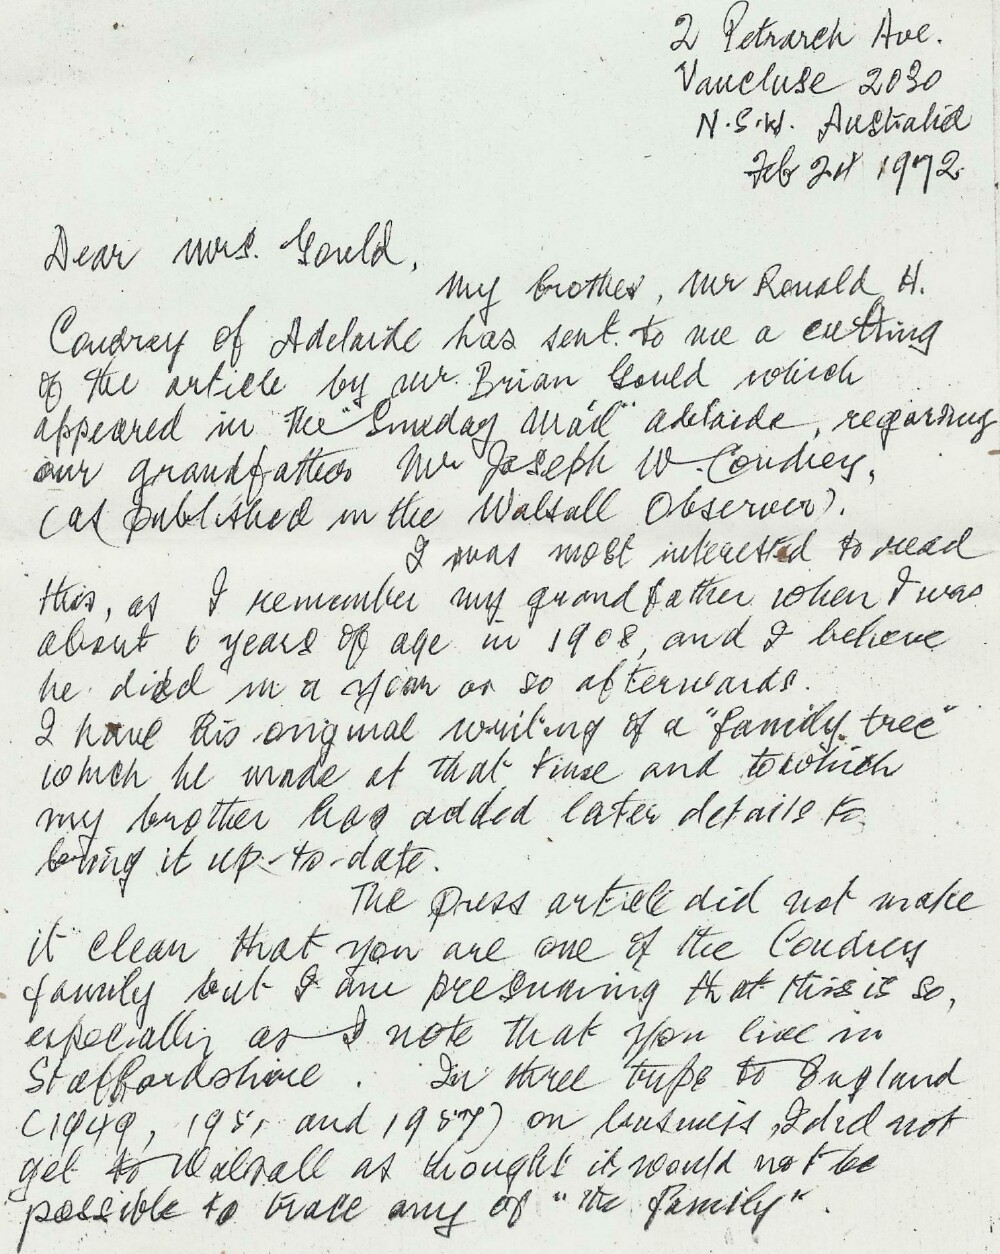 2 Petrarch Ave.
Vaucluse 2030
N.S.W. Australia
Feb 24 1972.
Dear Mrs. Gould,
My brother, Mr Ronald H.
Coudrey of Adelaide has sent to me a cutting
of the article by Mr. Brian Gould which
appeared in the "Sunday Mail" Adelaide, regarding
our grandfather Mr Joseph W. Coudrey,
(as published in the Walsall Observer).
I was most interested to read
this, as I remember my grandfather when I was
about 6 years of age in 1908, and I believe
he died in a year or so afterwards.
I have his original writing of a "family tree"
which he made at that time and to which
my brother has added later details to
bring it up-to-date.
The press article did not make
it clear that you are one of the Coudrey
family but I am presuming that this is so,
especially as I note that you live in
Staffordshire. In three trips to England
(1949, 1951 and 1957) on business, I did not
get to Walsall as thought it would not be
possible to trace any of "the family".